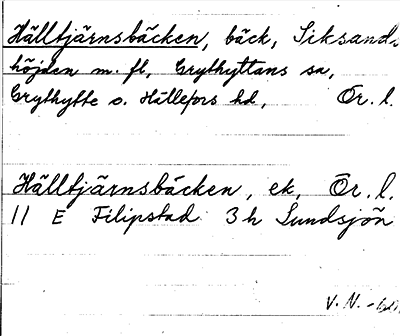 Hälltjärnsbäcken, bäck, Siksand-
höjden m. fl, Grythyttans sn,
Grythytte o. Hällefors hd, Ör. l.
Hälltjärnsbäcken, ek, Ör. l.
11 E Filipstad 3h Sundsjön
V. N.